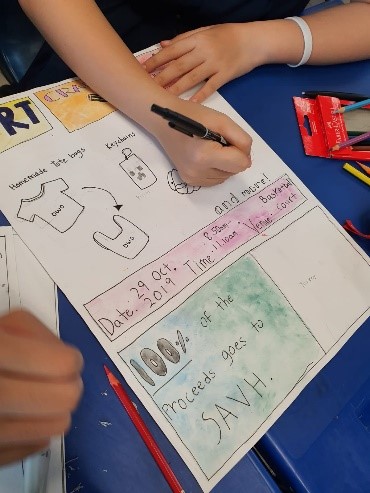 RT
CRA
Homemade Tote bags
Keychains
OWO
OWO
and more!
Date. 29 Oct. 2019
Time
8.50am - 11.10am
Venue. Basketball Court
100% of the
Proceeds goes to
SAVH.